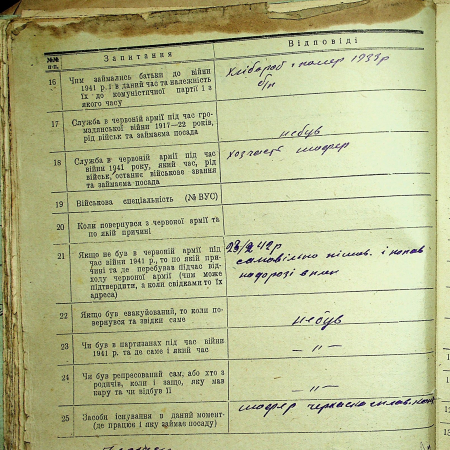 №№ п-п.
Запитання
Відповіді
16
Чим займались батьки до війни
1941 р. і в даний час та належність
їх до комуністичної партії і з
якого часу
Хлібороб, помер 1933 р
б/п
17
Служба в червоній армії під час гро-
мадянської війни 1917—22 років,
рід військ та займаема посада
небув
18
Служба в червоній армії під час
війни 1941 року, який час, рід
військ, останнє військове звання
та займаема посада
Хозчасть шофер
19
Військова спеціяльність (№ ВУС)
20
Коли повернувся з червоної армії та
по якій причині
21
Якщо не був в червоній армії під
час війни 1941 р., то по якій при-
чині та де перебував підчас від-
ходу червоної армії (чим може
підтвердити, а коли свідками то їх
адреса)
42р
самовільно і попав
на дорозі в плин
22
Якщо був евакуйований, то коли по-
вернувся та звідки саме
небув
23
Чи був в партизанах під час війни
1941 р. та де саме і який час
— „ —
24
Чи був репресований сам, або хто з
родичів, коли і защо, яку мав
кару та чи відбув її
— „ —
25
Засоби існування в даний момент-
(де працює і яку займає посаду)
шофер